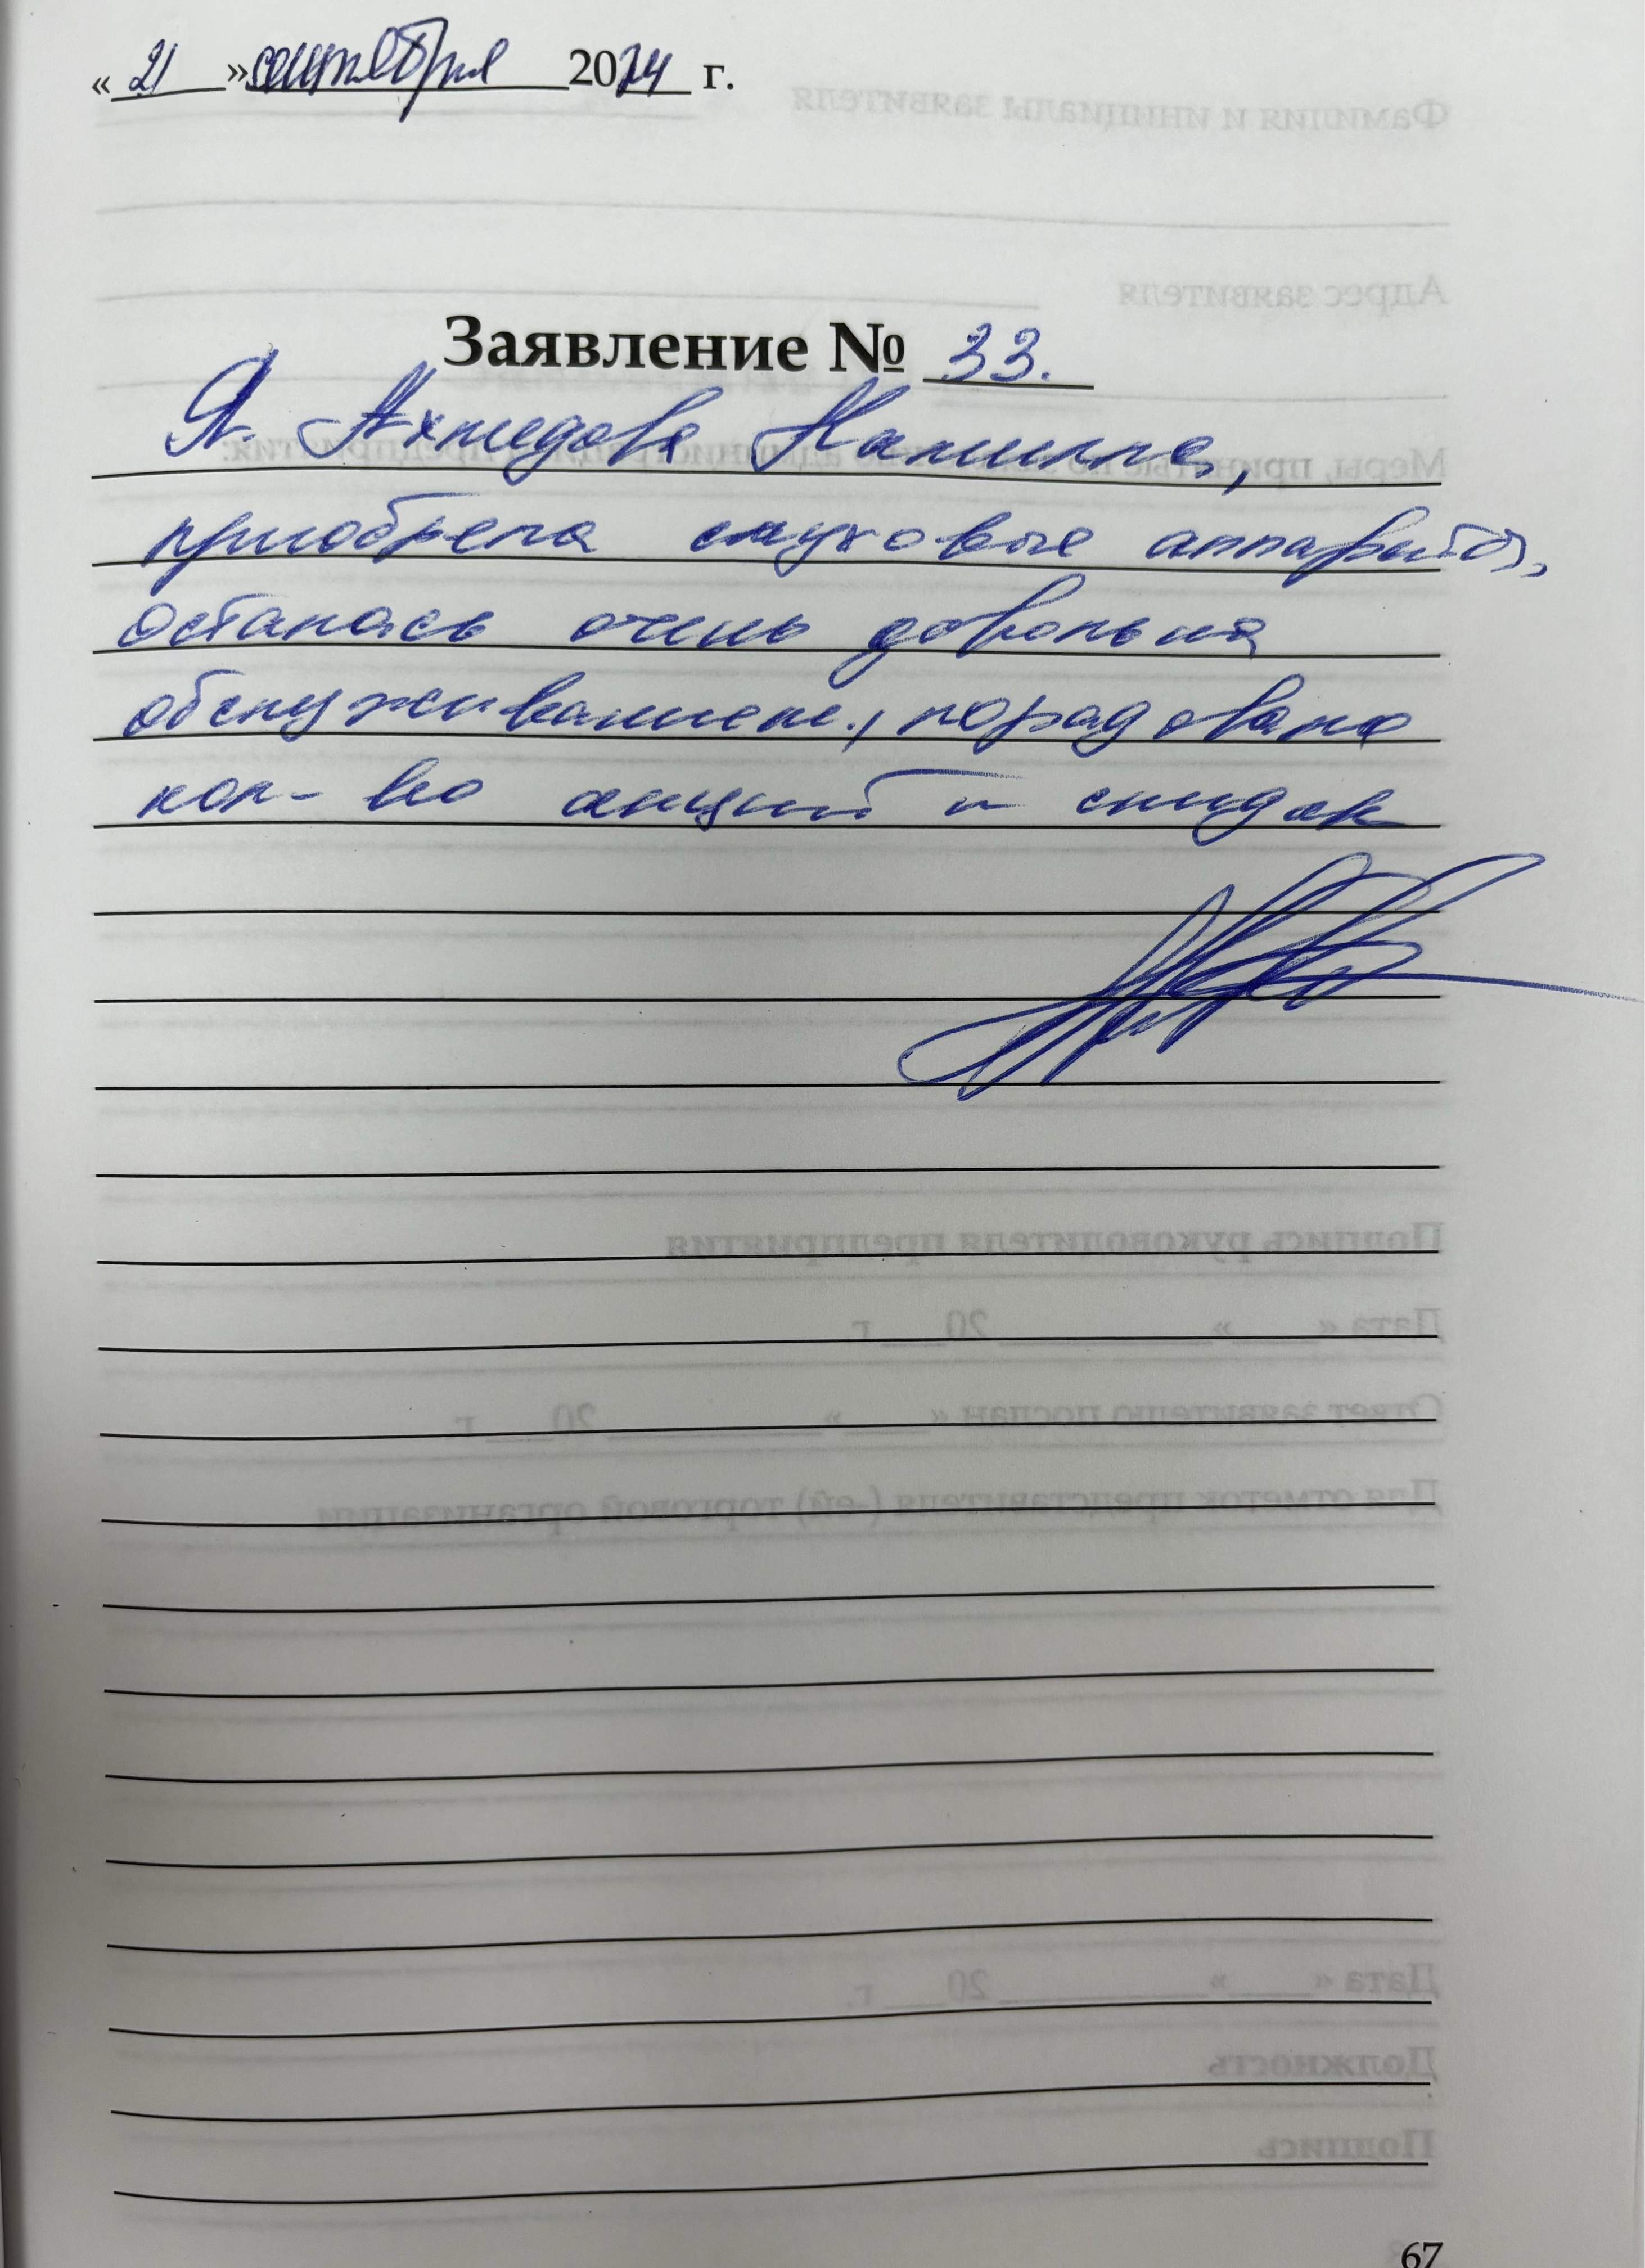 « 21 » сентября 2024 г.
Заявление № 33.
Я. Ахмедова
приобрела слуховые аппараты,
осталась очень довольна
обслуживанием, порадовало
кол-во акций и скидок
67